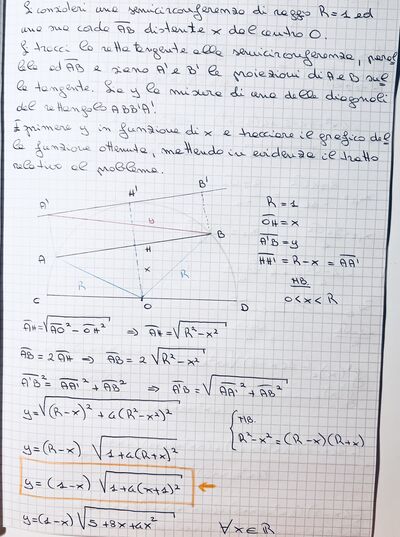 Si consideri una semicirconferenza di raggio R=1 ed
una sua corda AB distante x dal centro O.
Si tracci la retta tangente alla semicirconferenza, paral
lela ad AB e siano A' e B' le proiezioni di A e B sul
la tangente. Sia y la misura di una delle diagonali
del rettangolo ABB'A'.
Esprimere y in funzione di x e tracciare il grafico del
la funzione ottenuta, mettendo in evidenza il tratto
relativo al problema.
A'
H'
B'
R=1
OH=x
A'B=y
HH'=R-x=AA'
NB.
0<x<R
D
B
H
A
x
R
R
C
O
D
AH=√AO²-OH² ⇒ AH=√R²-x²
AB=2AH ⇒ AB=2√R²-x²
A'B²=AA'²+AB² ⇒ A'B=√AA'²+AB²
y=√(R-x)²+4(R²-x²)²
NB.
R²-x²=(R-x)(R+x)
y=(R-x)√1+4(R+x)²
y=(1-x)√1+4(x+1)² ←
y=(1-x)√5+8x+4x² ∀x∈R